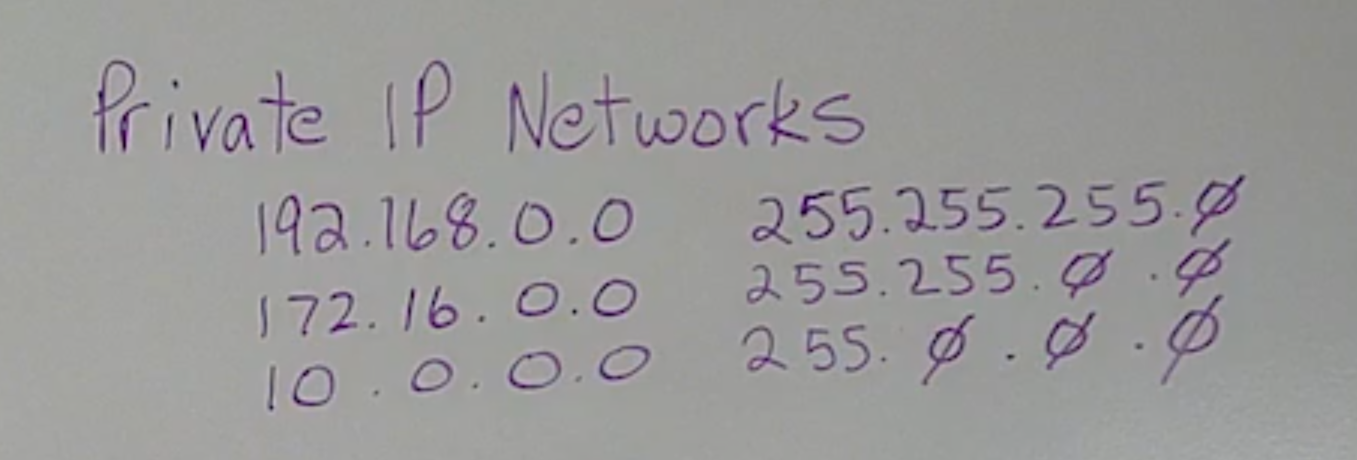 Private IP Networks
192.168.0.0 255.255.255.0
172.16.0.0 255.255.0.0
10.0.0.0 255.0.0.0